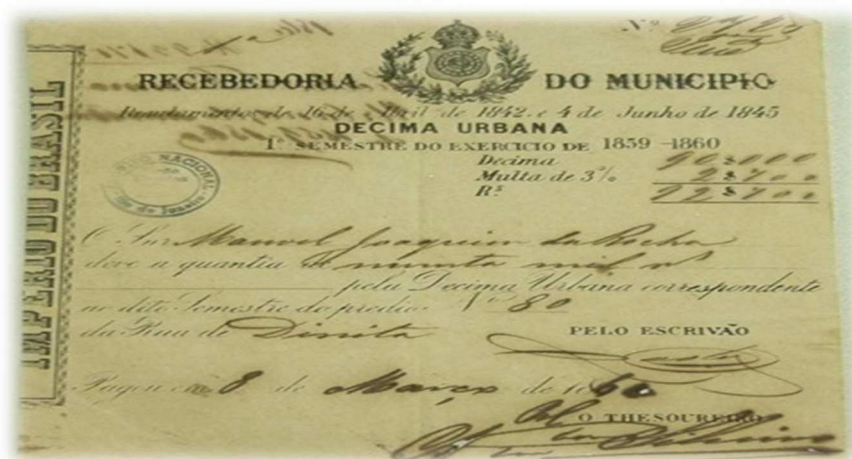 Nº
RECEBEDORIA DO MUNICIPIO
Regulamentos de 16 de Abril de 1842 e 4 de Junho de 1845
DECIMA URBANA
1º SEMESTRE DO EXERCICIO DE 1859-1860
Decima 90$000
Multa de 3% 2$700
Rs 92$700
NACIONAL
Rio de Janeiro
IMPERIO DO BRASIL
O Snr Manoel Joaquim da Rocha
deve a quantia de noventa mil rs
pela Decima Urbana correspondente
ao dito Semestre do predio Nº 80
da Rua de
PELO ESCRIVÃO
Pagou em 8 de Março de 1860
O THESOUREIRO